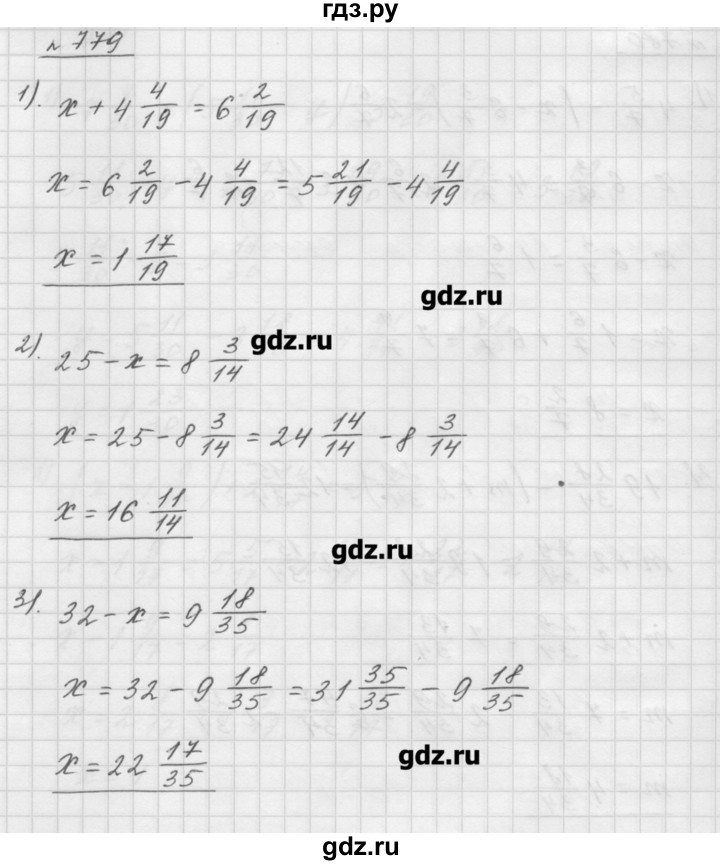 гдз.ру
№ 779
1). x + 4 4/19 = 6 2/19
x = 6 2/19 - 4 4/19 = 5 21/19 - 4 4/19
x = 1 17/19
gdz.ru
2). 25 - x = 8 3/14
gdz.ru
x = 25 - 8 3/14 = 24 14/14 - 8 3/14
x = 16 11/14
gdz.ru
3). 32 - x = 9 18/35
x = 32 - 9 18/35 = 31 35/35 - 9 18/35
x = 22 17/35
gdz.ru
gdz.ru